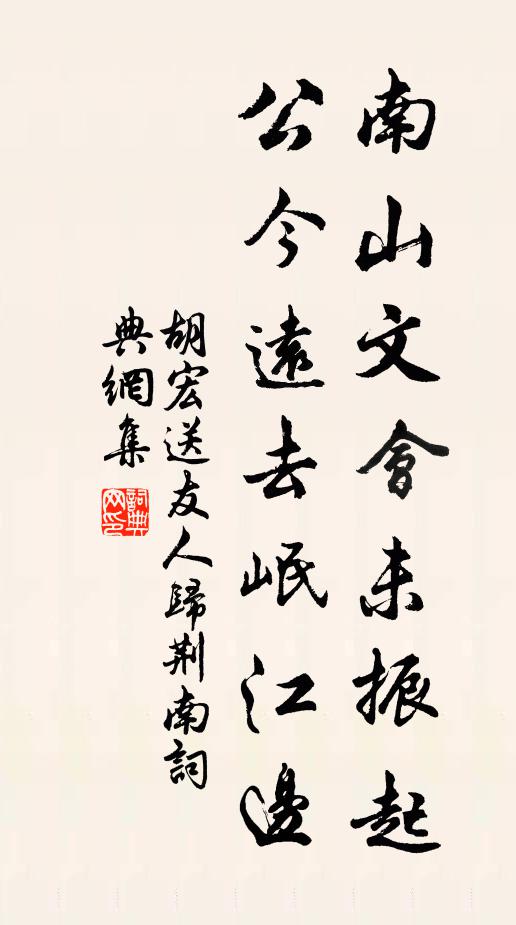 南山文會未振起
公今遠去岷江邊
胡宏送友人歸荆南詞
典網集
詞典
网印